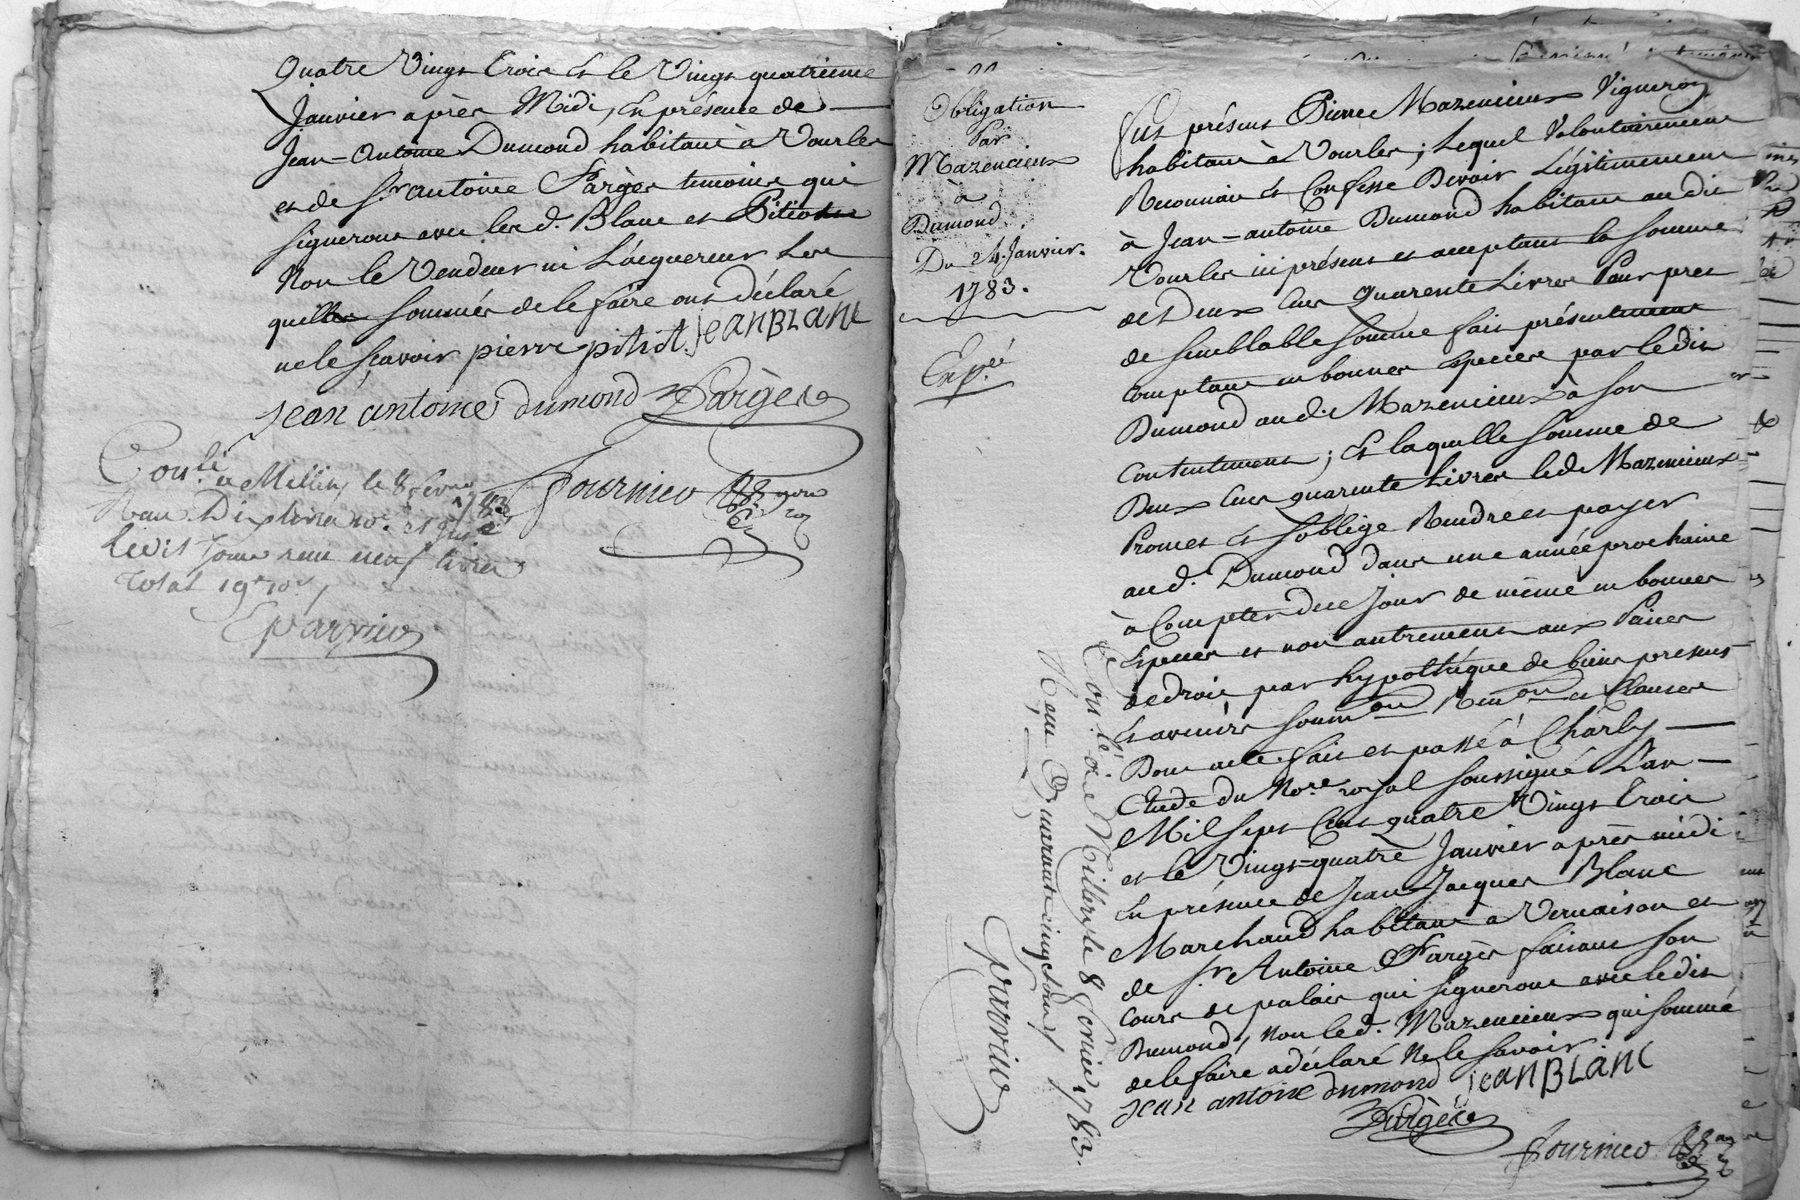 Quatre Vingt Trois et le Vingt quatrieme
Janvier après Midi, En présence de
Jean-Antoine Dumond habitant à Vourles
et de Sr. antoine Fargès temoins qui
signeront avec les d. Blanc et Pitiot
Non le Vendeur ni L'acquereur Les
quels sommés de le faire ont déclaré
ne le sçavoir pierre pitiot jean BLANC
jean antoine dumond Fargès
Fournier
Con.lé à Millery le 8 fevrier 1783
Recu Dix livres
le dit Jour neuf livres
Total 19# 10s
Eparvier
Obligation
Par
Mazencieux
à
Dumond
Du 24. Janvier.
1783.
Exp.ié
Fut présent Pierre Mazencieux Vigneron
habitant à Vourles; Lequel Volontairement
Reconnait et Confesse Devoir Légitimement
à Jean-antoine Dumond habitant au dit
Vourles ici présent et acceptant la somme
de Deux Cent Quarente Livres Pour pret
de semblable somme fait présentement
comptant en bonnes Especes par le dit
Dumond au d. Mazencieux à son
Contentement; Et laquelle somme de
Deux Cent quarente Livres led. Mazencieux
Promet et s'oblige Rendre et payer
au d. Dumond dans une année prochaine
à Compter de ce Jour de même en bonnes
Especes et non autrement aux Peines
de droit par hypothéque de biens presents
Et avenirs soum.on Ren.on et Clauses
Dont acte fait et passé à Charly
Etude du No.re royal soussigné L'an
Mil Sept Cent quatre Vingt Trois
et le Vingt=quatre Janvier après midi
En présence de Jean Jacques Blanc
Marchand habitant à Vernaison et
de Sr. Antoine Fargès faisant son
cours de palais qui signeront avec ledit
Dumond, Non le d. Mazencieux qui sommé
de le faire a déclaré Ne le savoir
jean antoine dumond jean BLANC
Fargès
Fournier
Con.lé à Millery le 8 fevrier 1783.
Recu Quarante cinq sous
Eparvier